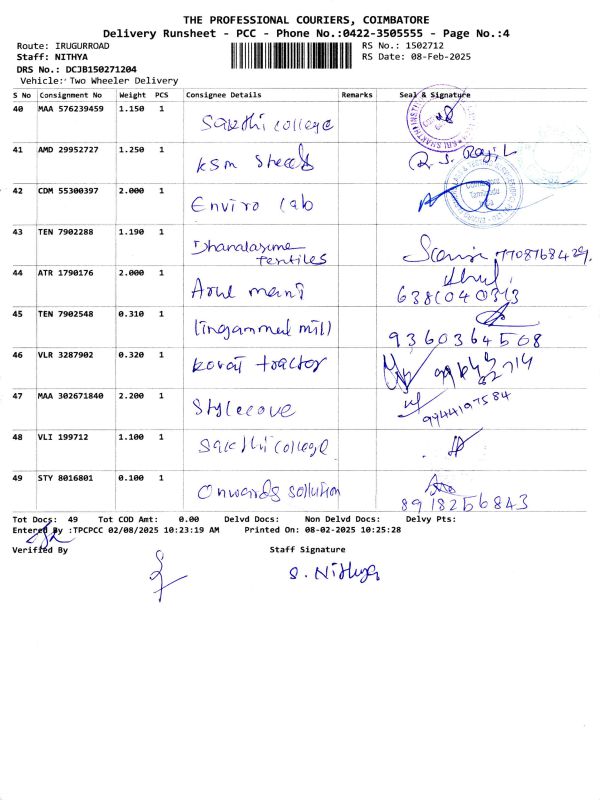 THE PROFESSIONAL COURIERS, COIMBATORE
Delivery Runsheet - PCC - Phone No.:0422-3505555 - Page No.:4
Route: IRUGURROAD RS No.: 1502712
Staff: NITHYA RS Date: 08-Feb-2025
DRS No.: DCJB150271204
Vehicle: Two Wheeler Delivery
S No Consignment No Weight PCS Consignee Details Remarks Seal & Signature
40 MAA 576239459 1.150 1 Sakthi college
41 AMD 29952727 1.250 1 KSM Steels
42 CDM 55300397 2.000 1 Enviro lab
43 TEN 7902288 1.190 1 Dhanalaxume textiles 7708768429.
44 ATR 1790176 2.000 1 Arul mani 6381040313
45 TEN 7902548 0.310 1 lingammal mill 9360364508
46 VLR 3287902 0.320 1 kovai tractor
47 MAA 302671840 2.200 1 Stylecove 9944197584
48 VLI 199712 1.100 1 Sakthi college
49 STY 8016801 0.100 1 Onwards sollution 8918256843
Tot Docs: 49 Tot COD Amt: 0.00 Delvd Docs: Non Delvd Docs: Delvy Pts:
Entered By :TPCPCC 02/08/2025 10:23:19 AM Printed On: 08-02-2025 10:25:28
Verified By Staff Signature
S. Nithya